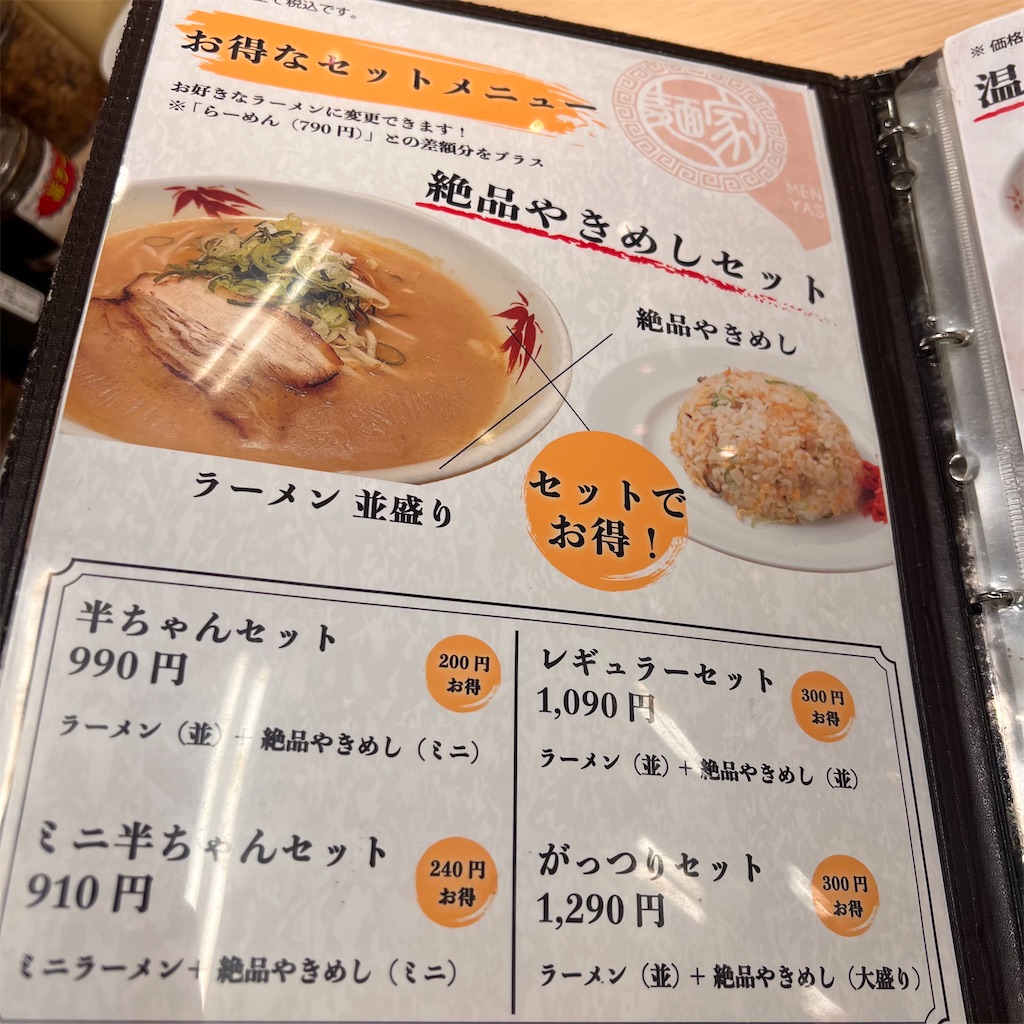 て税込です。
お得なセットメニュー
お好きなラーメンに変更できます！
※「らーめん（790円）」との差額分をプラス
麺家
MEN
YAS
絶品やきめしセット
絶品やきめし
ラーメン 並盛り
セットで
お得！
半ちゃんセット
990円
200円
お得
ラーメン（並）＋絶品やきめし（ミニ）
ミニ半ちゃんセット
910円
240円
お得
ミニラーメン＋絶品やきめし（ミニ）
レギュラーセット
1,090円
300円
お得
ラーメン（並）＋絶品やきめし（並）
がっつりセット
1,290円
300円
お得
ラーメン（並）＋絶品やきめし（大盛り）
※価格
温